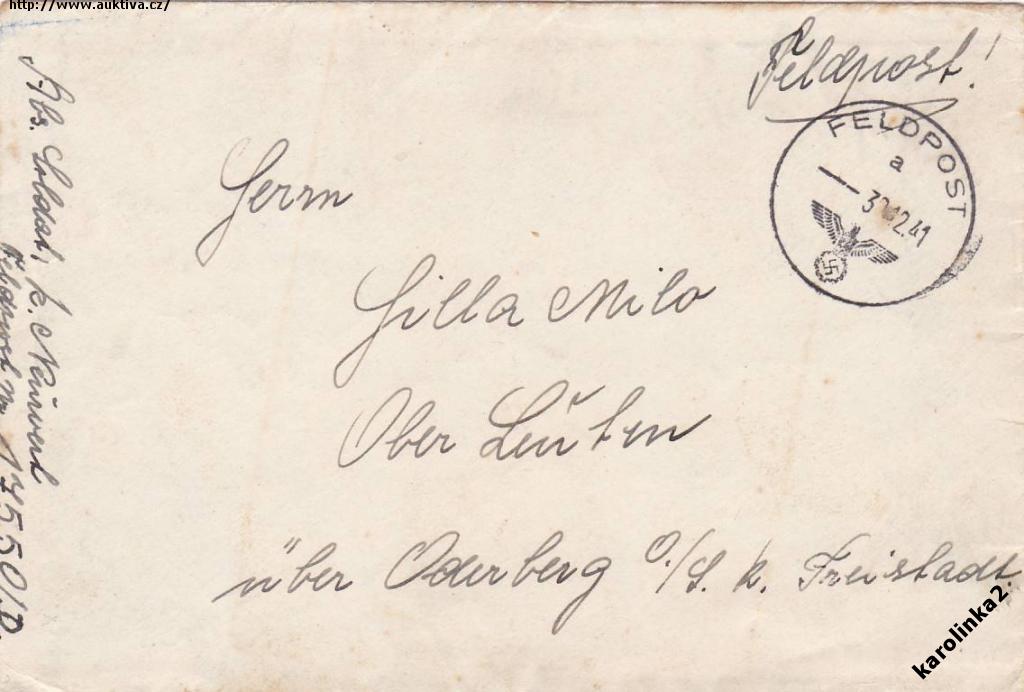 http://www.auktiva.cz/
Feldpost!
FELDPOST
a
12.41
Herrn
Hilla Milo
Ober Leuten
über Oderberg O/S. k. Freistadt.
Abs. Soldat, K.
Feldpost Nr 17550/D.
karolinka2.